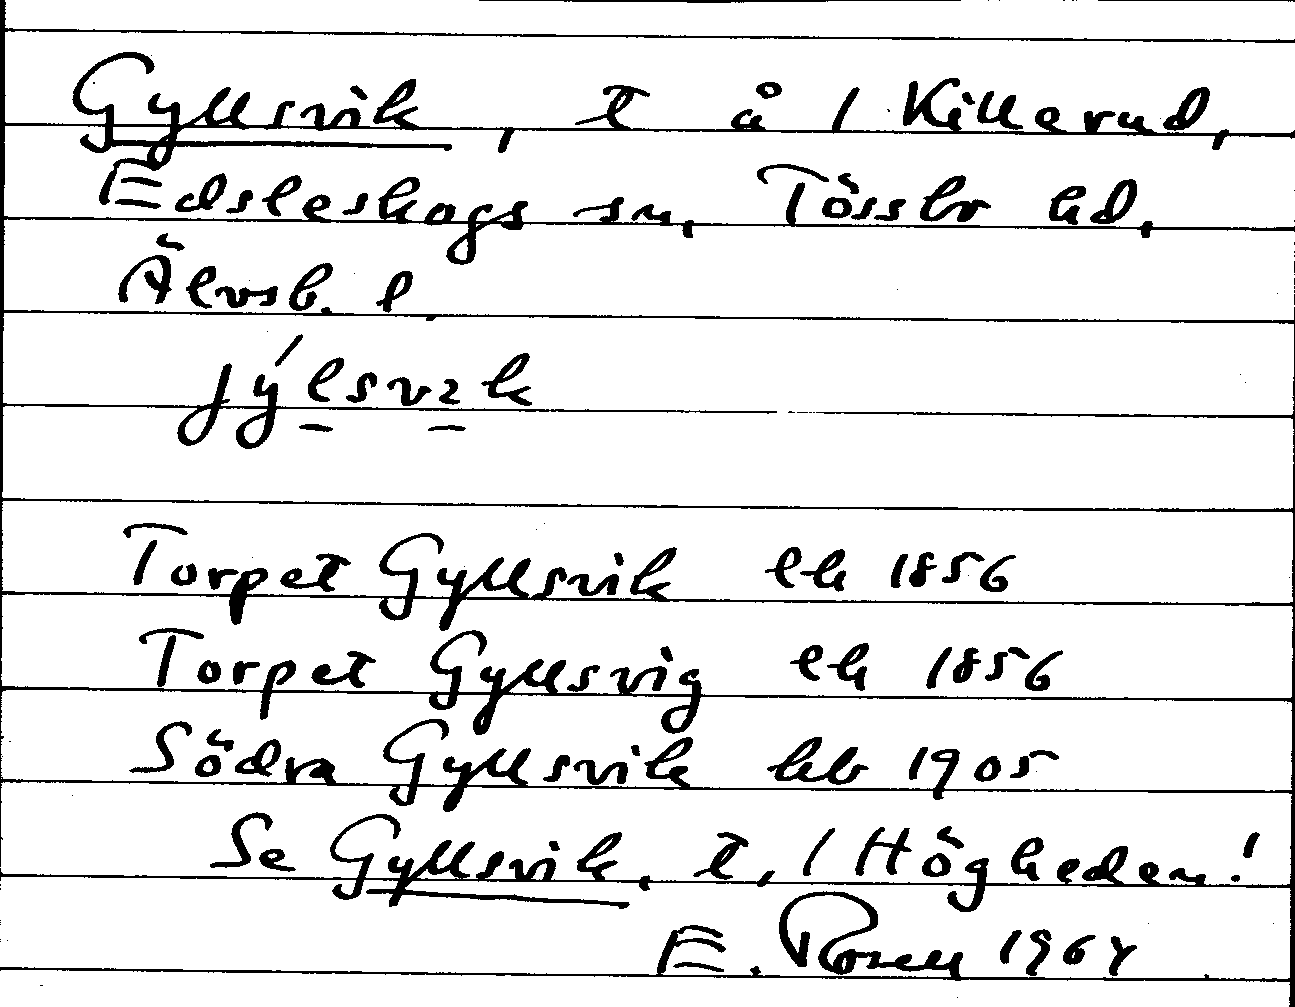 Gyllsvik, t å / Killerud,
Edsleskogs sn, Tössbo hd,
Älvsb. l.
jýlsvɪk
Torpet Gyllsvik lh 1856
Torpet Gyllsvig lh 1856
Södra Gyllsvik kb 1905
Se Gyllsvik, t, / Högheden!
E. Rosell 1964